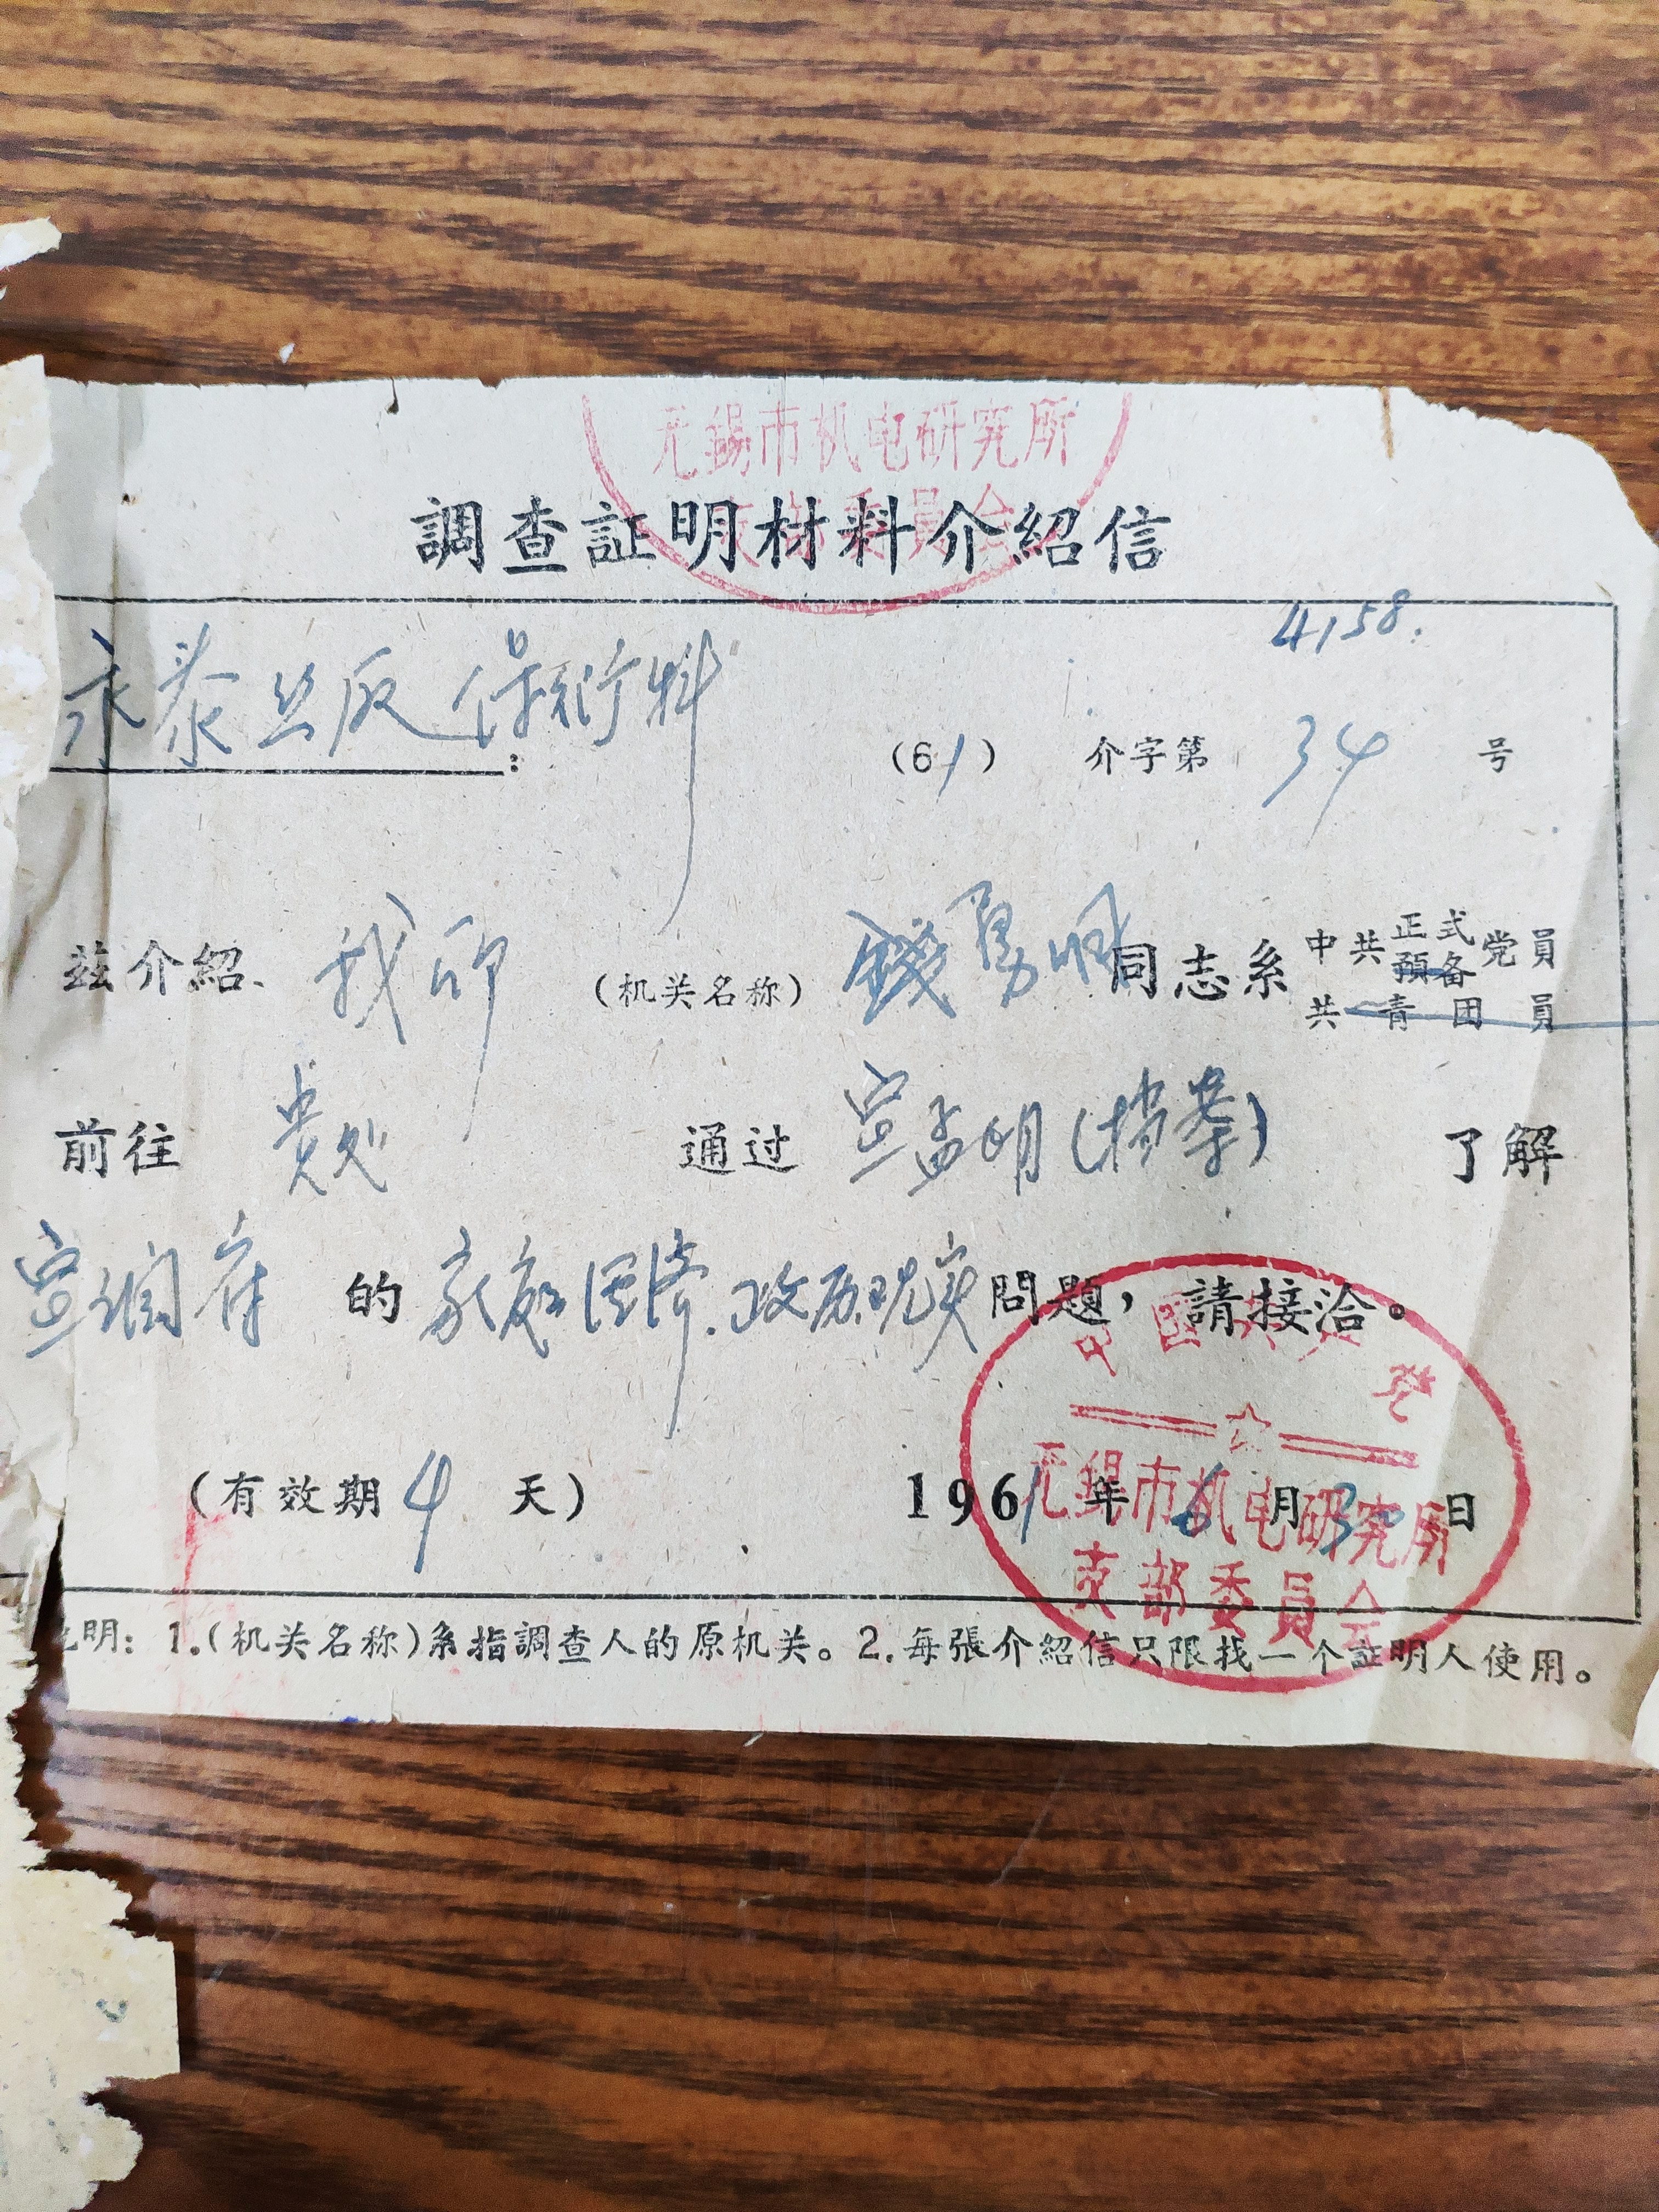 无锡市机电研究所
支部委員会
調查証明材料介紹信
4158.
永泰丝厰保衛科:
(61) 介字第 34 号
兹介紹 我所 (机关名称) 錢勇明 同志系 中共 正式 預备 党員 共青团員
前往 贵处 通过 宣孟明(档案) 了解
宣 的 家庭经济.政历.现实 問題，請接洽。
中国共产党
无锡市机电研究所
支部委員会
(有效期 4 天) 1961年6月30日
明：1.(机关名称)系指調查人的原机关。2.每張介紹信只限找一个証明人使用。